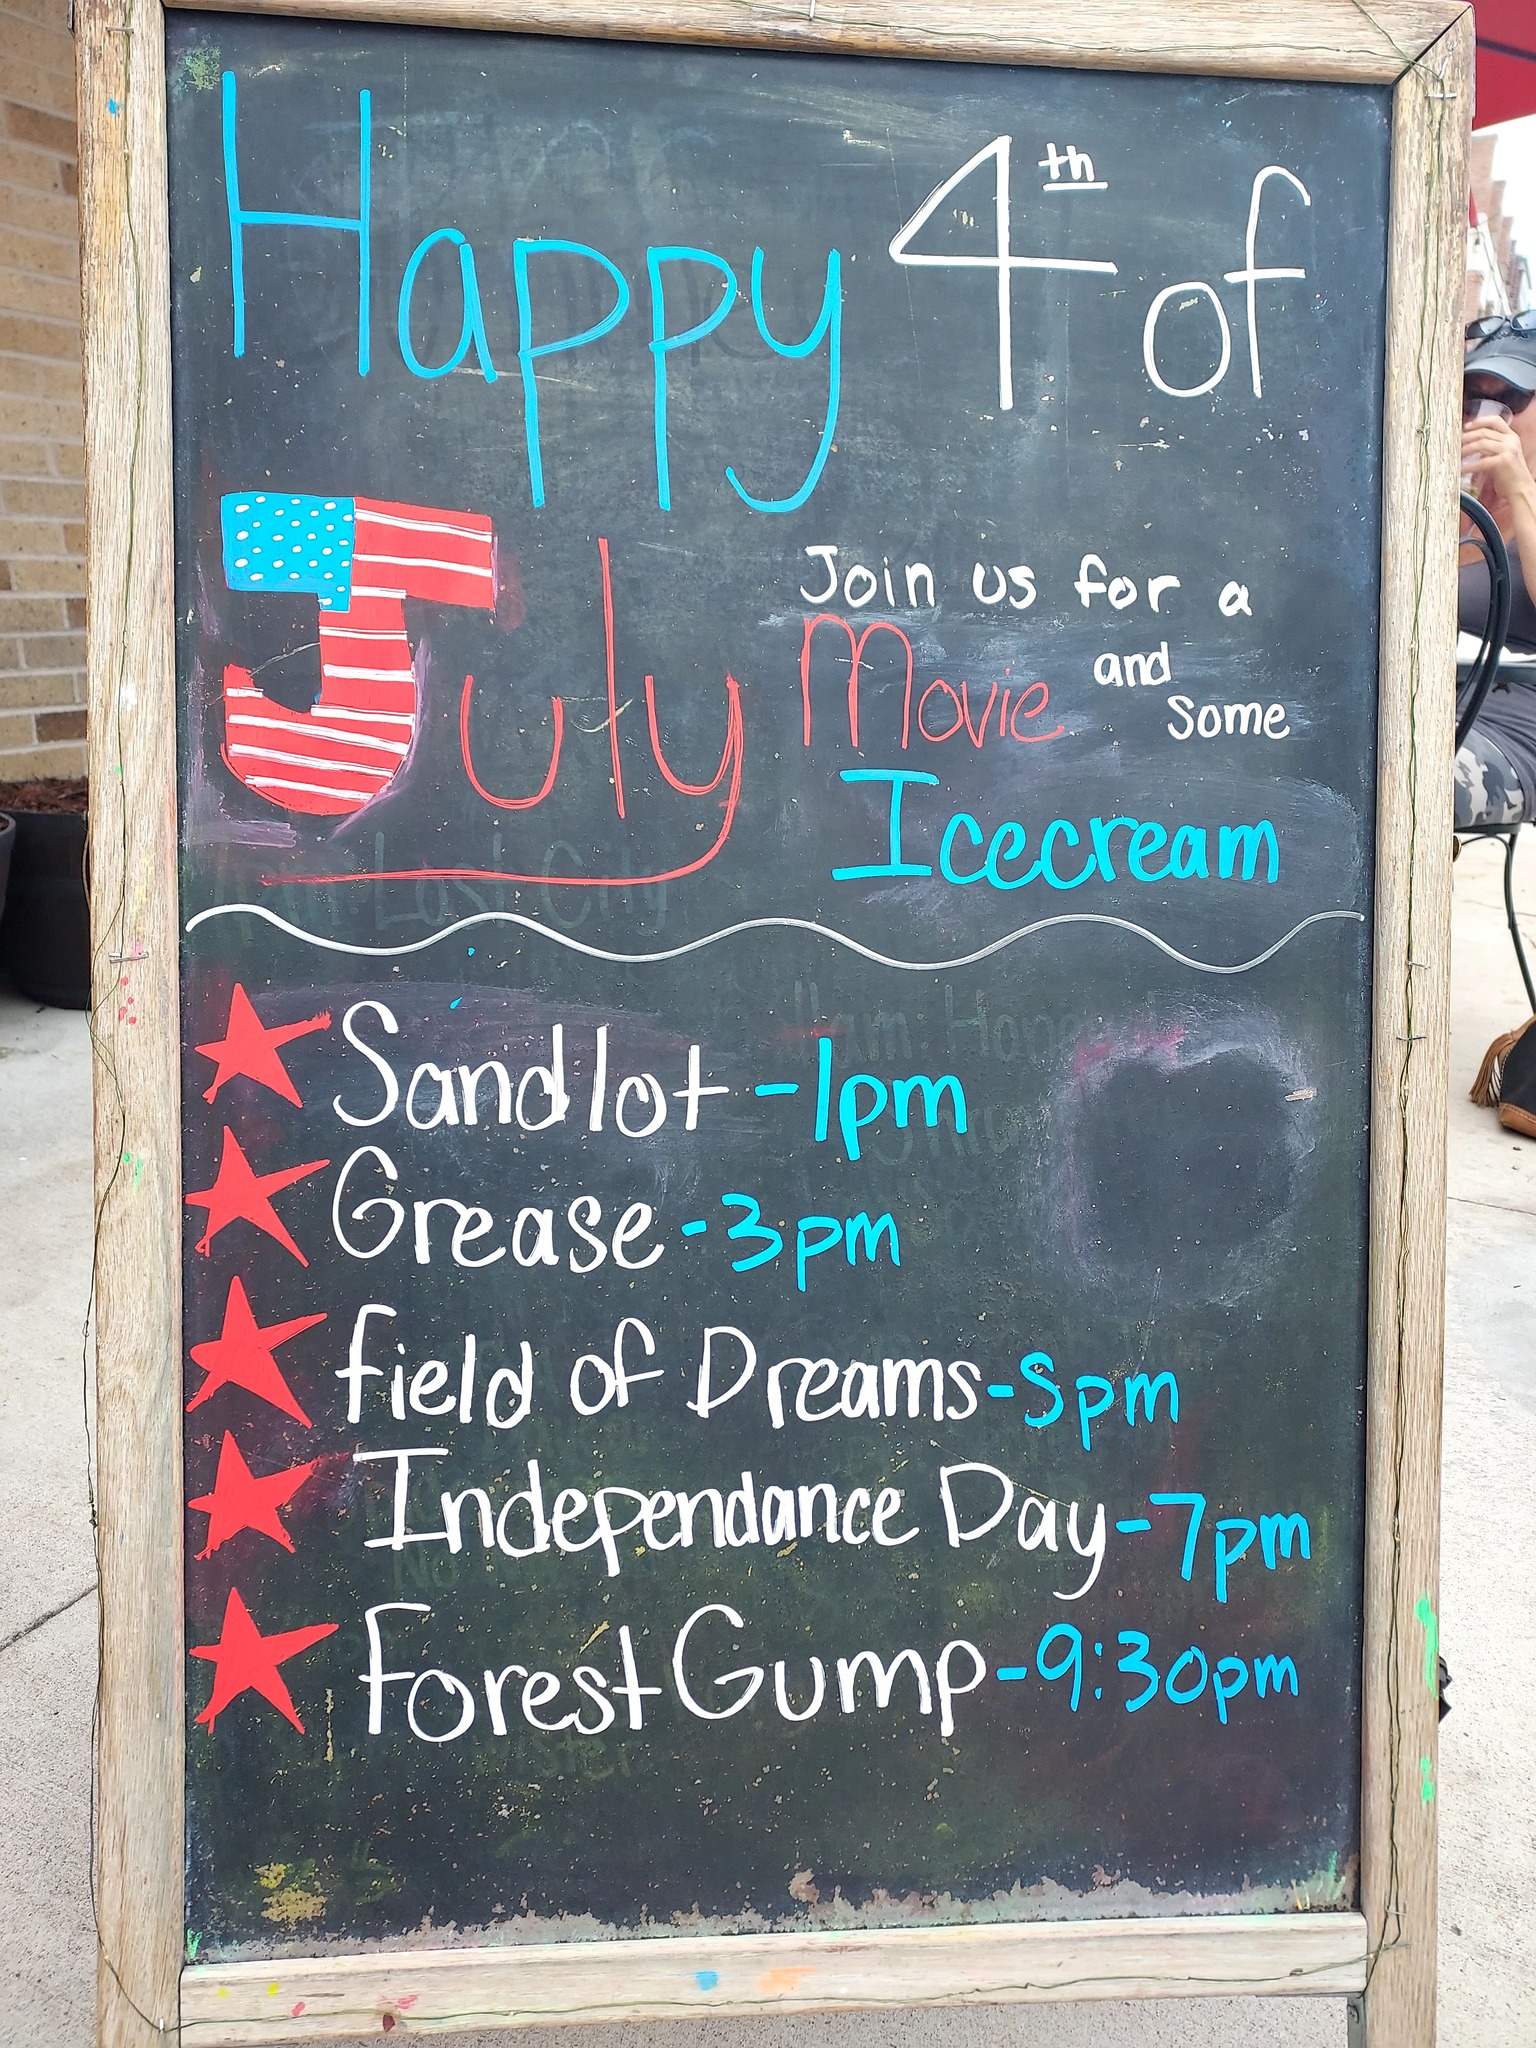 Happy 4th of
July
Join us for a
Movie and
some
Icecream
Sandlot - 1pm
Grease - 3pm
Field of Dreams - 5pm
Independance Day - 7pm
Forest Gump - 9:30pm